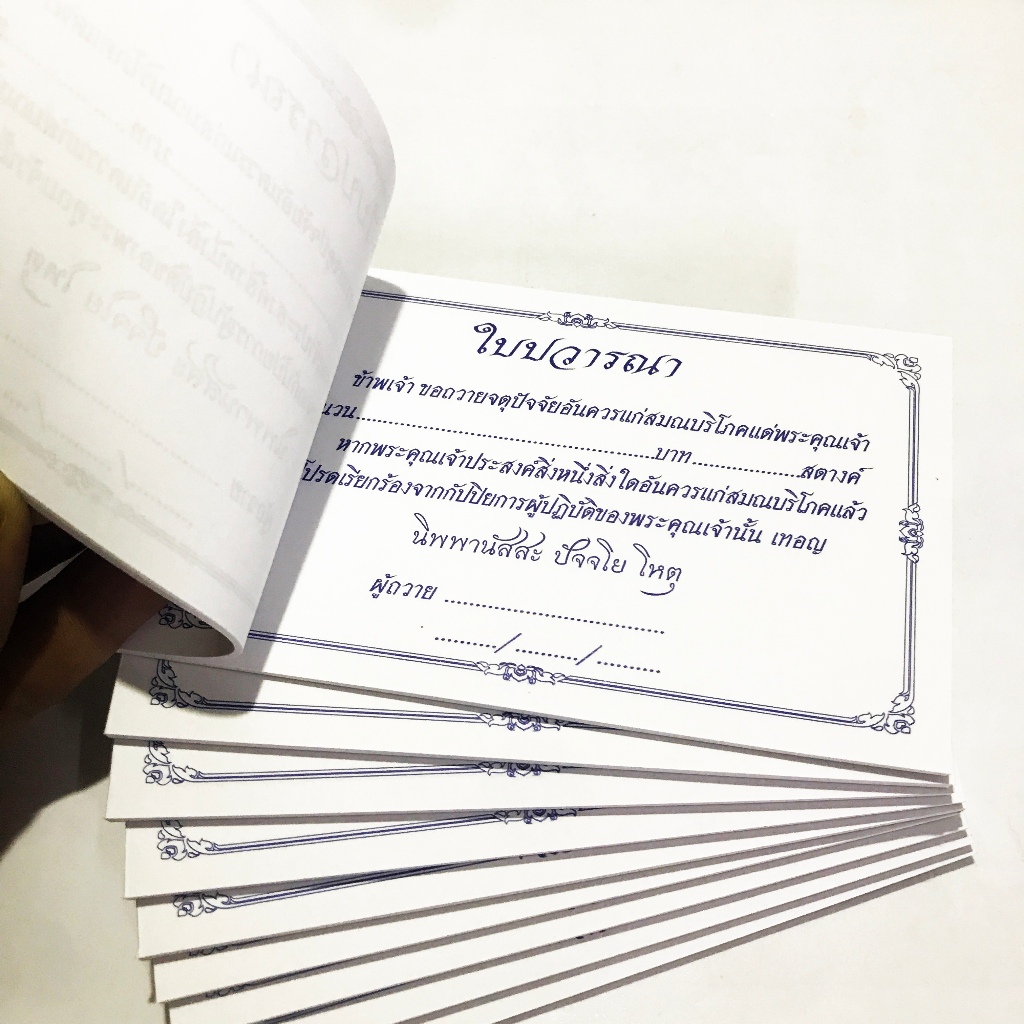 ใบปวารณา
ข้าพเจ้า ขอถวายจตุปัจจัยอันควรแก่สมณบริโภคแด่พระคุณเจ้า
นวน..........................................................บาท.....................สตางค์
หากพระคุณเจ้าประสงค์สิ่งหนึ่งสิ่งใดอันควรแก่สมณบริโภคแล้ว
โปรดเรียกร้องจากกัปปิยการผู้ปฏิบัติของพระคุณเจ้านั้น เทอญ
นิพพานัสสะ ปัจจโย โหตุ
ผู้ถวาย ..........................................
........../........../..........